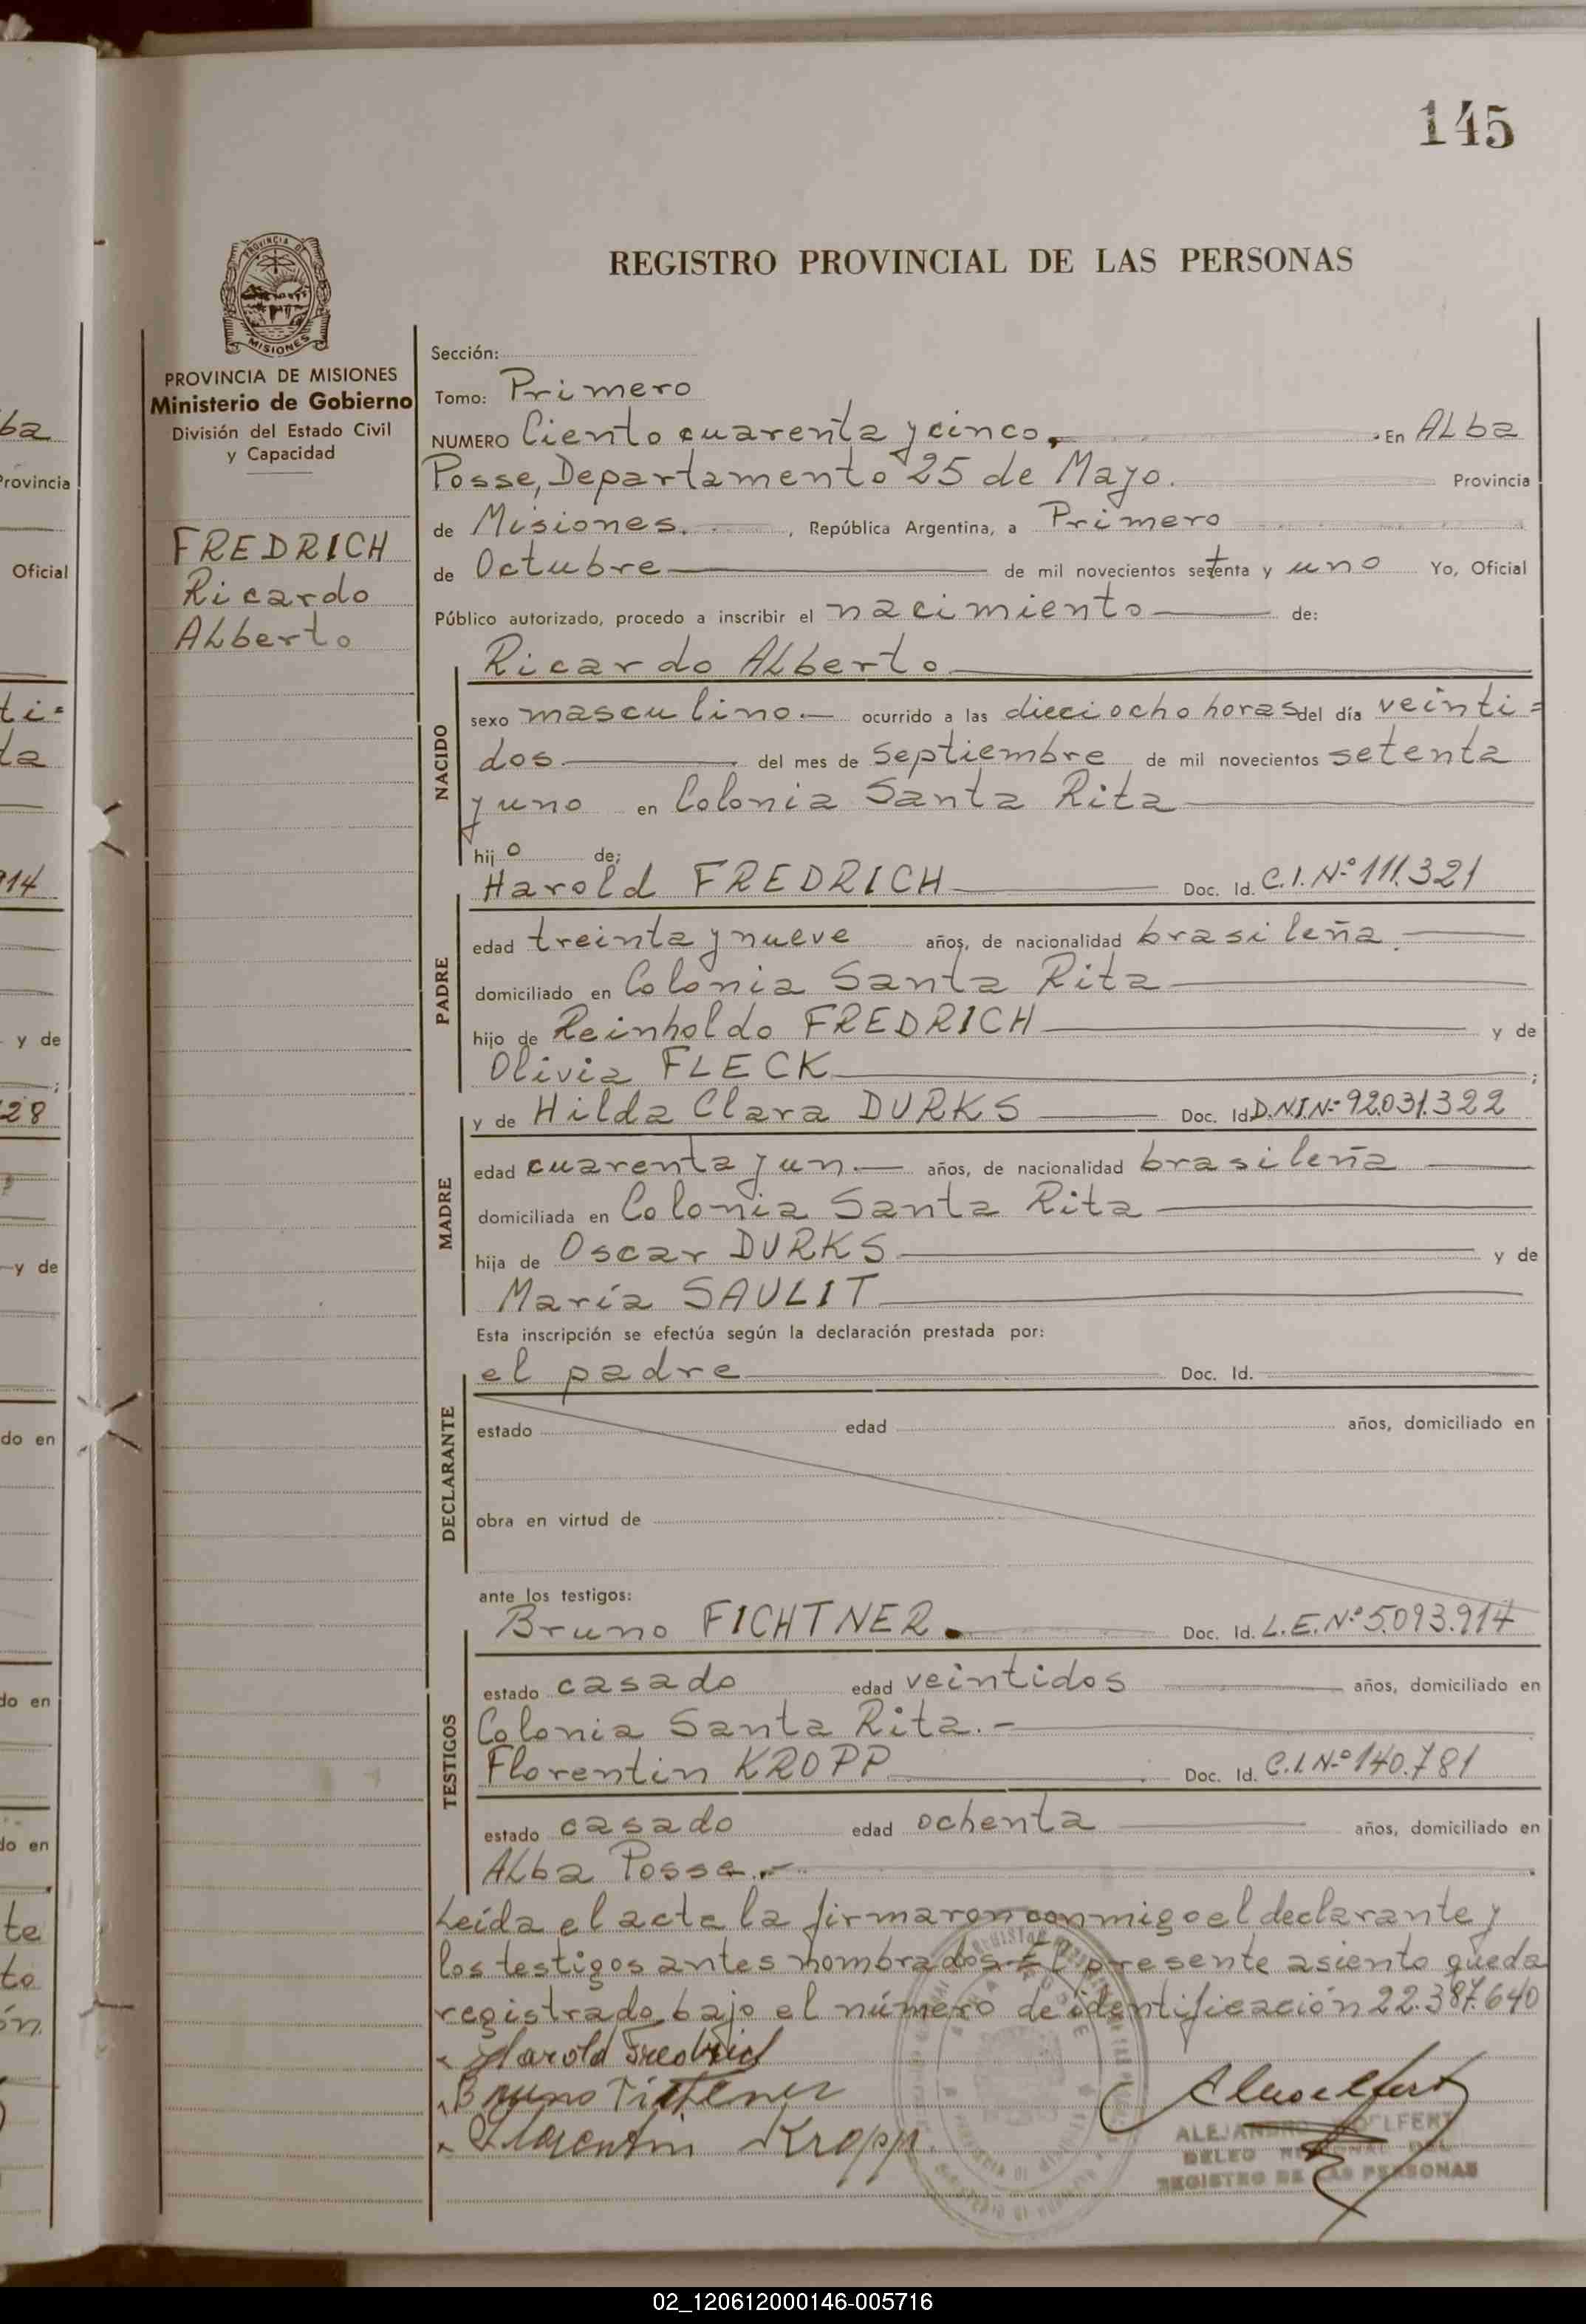 145
REGISTRO PROVINCIAL DE LAS PERSONAS
PROVINCIA DE
MISIONES
PROVINCIA DE MISIONES
Ministerio de Gobierno
División del Estado Civil
y Capacidad
FREDRICH
Ricardo
Alberto
Sección:
Tomo: Primero
NUMERO Ciento cuarenta y cinco. En Alba
Posse, Departamento 25 de Mayo. Provincia
de Misiones. , República Argentina, a Primero
de Octubre de mil novecientos setenta y uno Yo, Oficial
Público autorizado, procedo a inscribir el nacimiento de:
Ricardo Alberto
NACIDO
sexo masculino.- ocurrido a las dieciocho horas del día veinti=
dos del mes de Septiembre de mil novecientos setenta
y uno en Colonia Santa Rita
hijo de:
PADRE
Harold FREDRICH Doc. Id. C.I. Nº 111.321
edad treinta y nueve años, de nacionalidad brasileña.
domiciliado en Colonia Santa Rita
hijo de Reinholdo FREDRICH y de
Olivia FLECK ;
MADRE
y de Hilda Clara DURKS Doc. Id. D.N.I. Nº 92.031.322
edad cuarenta y un.- años, de nacionalidad brasileña
domiciliada en Colonia Santa Rita
hija de Oscar DURKS y de
María SAULIT
Esta inscripción se efectúa según la declaración prestada por:
DECLARANTE
el padre Doc. Id.
estado edad años, domiciliado en
obra en virtud de
ante los testigos:
TESTIGOS
Bruno FICHTNER. Doc. Id. L.E. Nº 5.093.914
estado casado edad veintidos años, domiciliado en
Colonia Santa Rita.-
Florentin KROPP Doc. Id. C.I. Nº 140.781
estado casado edad ochenta años, domiciliado en
Alba Posse.-
Leída el acta la firmaron conmigo el declarante y
los testigos antes nombrados.- El presente asiento queda
registrado bajo el número de identificación 22.387.640
Harold Fredrich
Bruno Fichtner
Florentin Kropp
REGISTRO DE LAS PERSONAS
ba
Provincia
Oficial
ti=
ta
914
y de
;
28
y de
do en
do en
do en
te
to
ón.
02_120612000146-005716